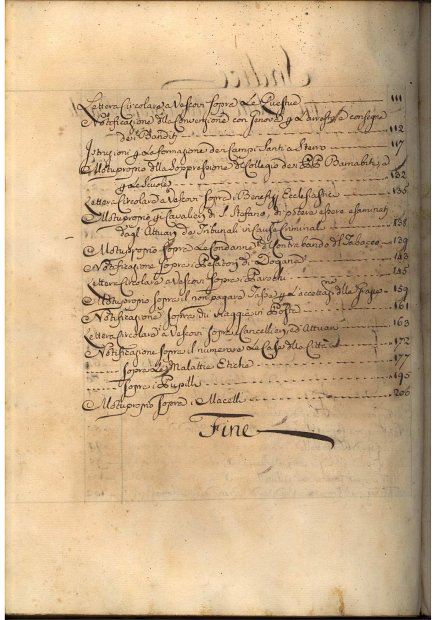 Lettera Circolare a Vescovi sopra Le Questue 111
Notificazione della Convenzione con Genova p La arresto e consegna
de Banditi 112
Istruzioni p La formazione de Campi Santi a Sterro 117
Motuproprio della Soppressione del Collegio de PP Barnabiti, e
p Le Scuole 132
Lettera Circolare a Vescovi sopra i Benefizj Ecclesiastici 135
Motuproprio p i Cavalieri di S. Stefano, di potere essere esaminati
dagl'Attuarj de Tribunali in Cause Criminali 138
Motuproprio sopra Le Condanne di Contrabando di Tabacco 139
Notificazione sopra i di Dogana 143
Lettera Circolare a Vescovi sopra i Parochi 145
Motuproprio sopra il non pagare Tasse p L'accettaz.ne delle 159
Notificazione sopra di Viaggia in Posta 161
Lettera Circolare a Vescovi sopra i Cancellieri, ed Attuari 163
Notificazione sopra il numerare Le Case della Città 172
sopra Le Malattie Etiche 177
sopra i Pupilli 195
Motuproprio sopra i Macelli 206
Fine